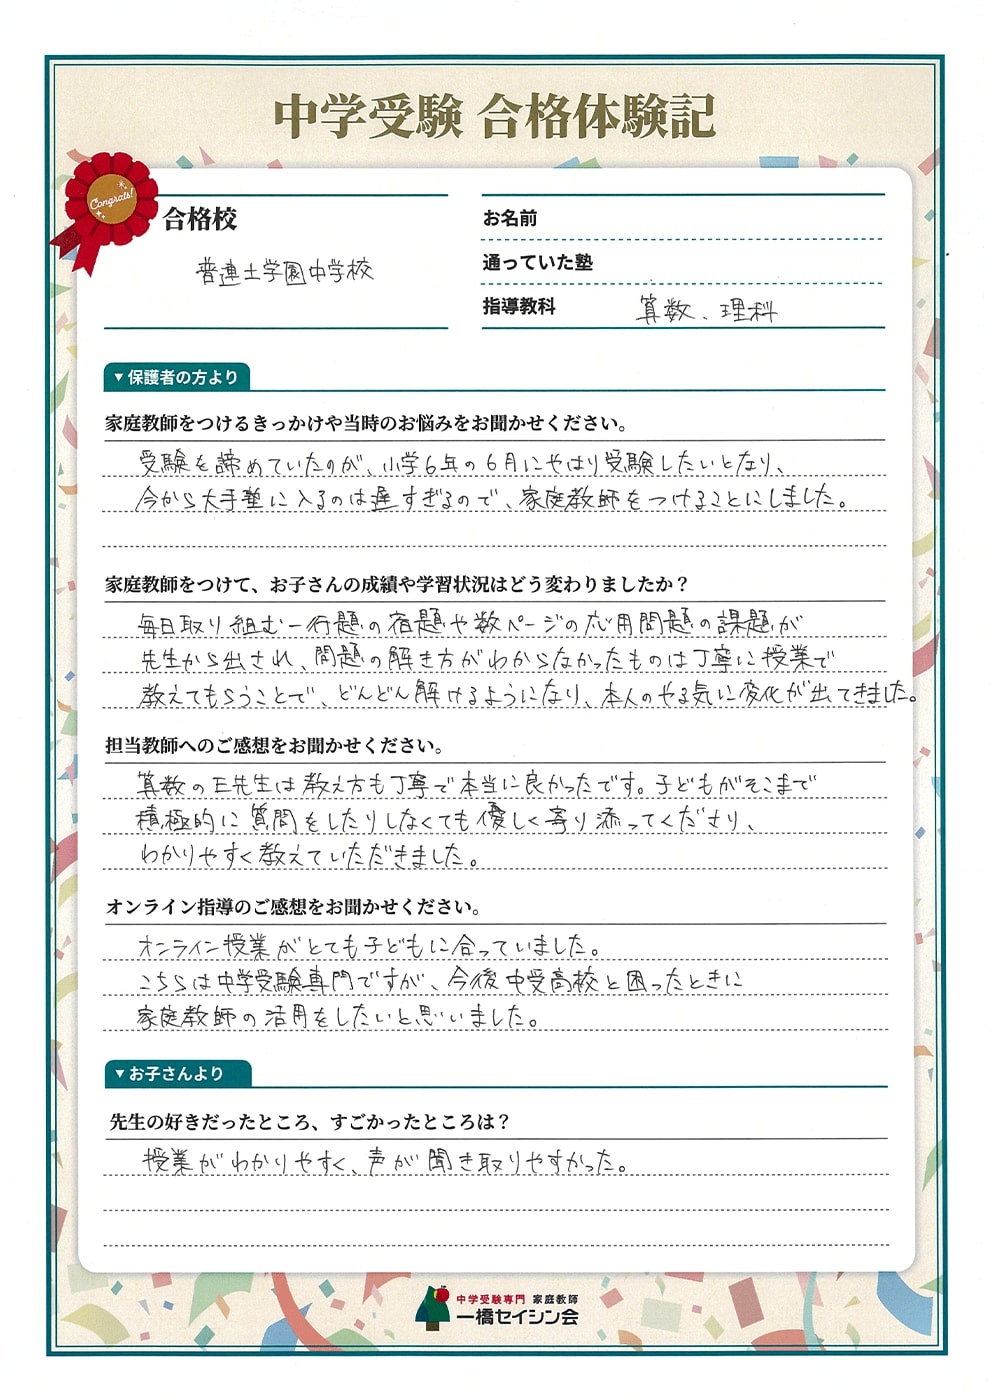 中学受験 合格体験記
Congrats!
合格校
普連土学園中学校
お名前
通っていた塾
指導教科 算数、理科
▼保護者の方より
家庭教師をつけるきっかけや当時のお悩みをお聞かせください。
受験を諦めていたのが、小学6年の6月にやはり受験したいとなり、
今から大手塾に入るのは遅すぎるので、家庭教師をつけることにしました。
家庭教師をつけて、お子さんの成績や学習状況はどう変わりましたか？
毎日取り組む一行題の宿題や数ページの応用問題の課題が
先生から出され、問題の解き方がわからなかったものは丁寧に授業で
教えてもらうことで、どんどん解けるようになり、本人のやる気に変化が出てきました。
担当教師へのご感想をお聞かせください。
算数のE先生は教え方も丁寧で本当に良かったです。子どもがそこまで
積極的に質問をしたりしなくても優しく寄り添ってくださり、
わかりやすく教えていただきました。
オンライン指導のご感想をお聞かせください。
オンライン授業がとても子どもに合っていました。
こちらは中学受験専門ですが、今後中受高校と困ったときに
家庭教師の活用をしたいと思いました。
▼お子さんより
先生の好きだったところ、すごかったところは？
授業がわかりやすく、声が聞き取りやすかった。
中学受験専門 家庭教師
一橋セイシン会